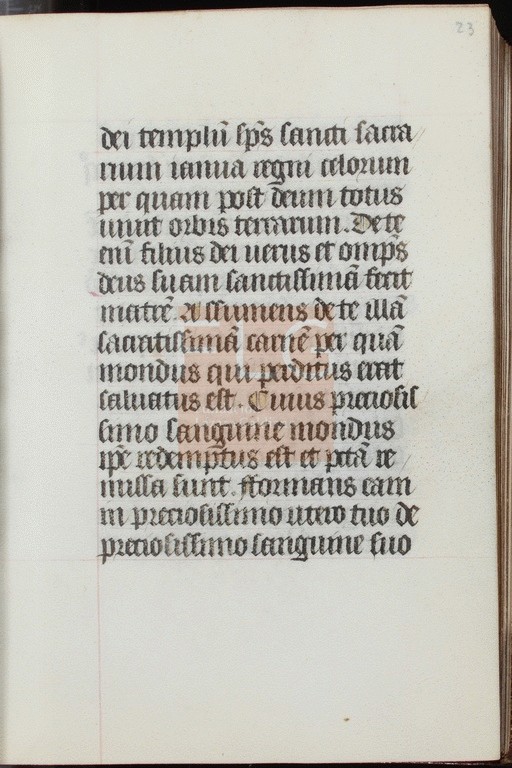 23
dei templũ sp̃s sancti sacra
rium ianua regni celorum
per quam post deum totus
uiuit orbis terrarum. De te
enĩ filius dei uerus et omp̃s
deus suam sanctissimã fecit
matrẽ. Assumens de te illã
sacratissimã carnẽ per quã
mondus qui perditus erat
saluatus est. Cuius preciosis
simo sanguine mondus
ip̃e redemptus est et pctã re
missa sunt. Formans eam
in preciosissimo utero tuo de
preciosissimo sanguine suo